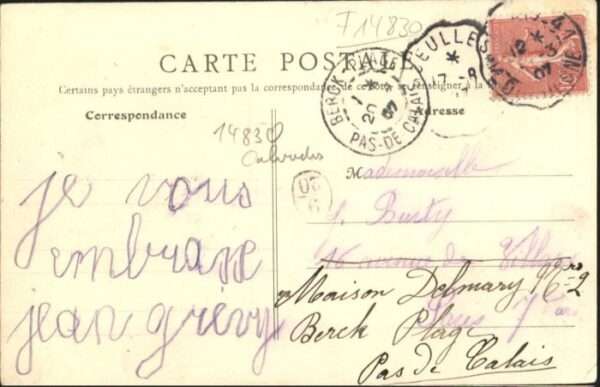 F14830
CARTE POSTALE
Certains pays étrangers n'acceptent pas la correspondance de ce côté se renseigner à la
Correspondance
Adresse
BERCK PLAGE
PAS-DE-CALAIS
14830
Calvados
je vous
embrasse
jean grévy
Mademoiselle
16 avenue de
Maison Delmary N° 2
Berck Plage
Pas de Calais